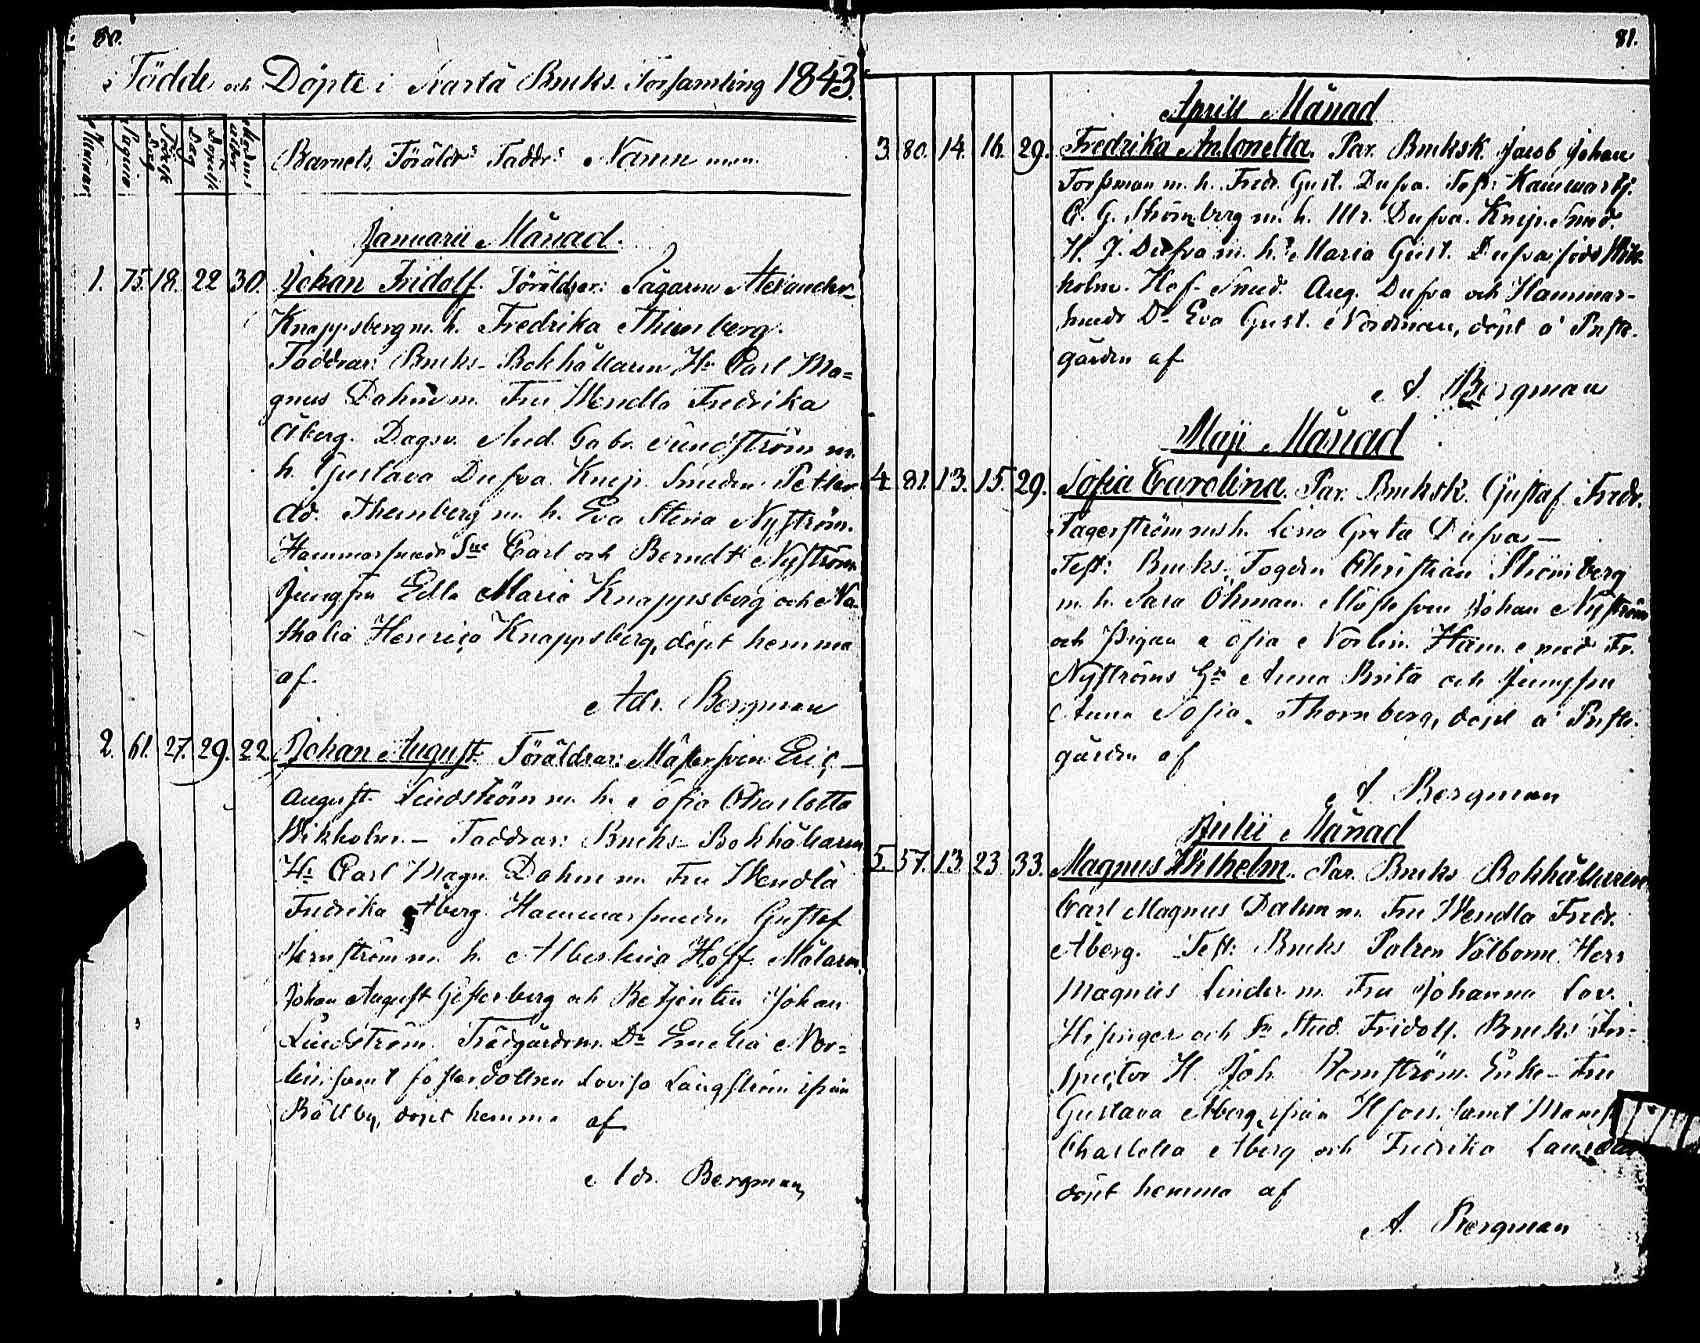 80.
Födde och Döpte i Svartå Bruks Församling 1843.
Nummer
Pagina
Födelse Dag
Döpelse Dag
Modrens ålder
Barnets, Föräldrs Faddrs Namn m.m.
Januarii Månad.
1. 75. 18. 22 30. Johan Fridolf. Föräldrar: Sågaren Alexander
Knappsberg m. h. Fredrika Thunberg.
Faddrar: Bruks-Bokhållaren Hr Carl Ma=
gnus Dahm m. Fru Wendla Fredrika
Åberg. Dagsv. And. Gabr. Sundström m.
h. Gustava Dufva. Knip. Smeden Petter
Ad. Thunberg m. h. Eva Stina Nyström.
Hammarsmeds Sne Carl och Berndt Nyström
Jungfru Edla Maria Knappsberg och Na-
thalia Henrica Knappsberg, döpt hemma
af
Adr. Bergman
2. 61. 27. 29. 22. Johan August. Föräldrar: Mästersven Eric
August Lindström m. h. Sofia Charlotta
Wikholm. – Faddrar: Bruks-Bokhållaren
Hr Carl Magn. Dahm m. Fru Wendla
Fredrika Åberg. Hammarsmeden Gustaf
Wernström m. h. Albertina Hoff. Målaren
Johan August Gesterberg och Betjenten Johan
Lindström. Trädgårdsm. Dr Emelia Nor=
lin samt fosterdottren Lovisa Långström ifrån
Bållby, döpt hemma af
Adr. Bergman
81.
Aprill Månad
3. 80. 14. 16. 29. Fredrika Antonetta. Par. Bruksk. Jacob Johan
Forssman m. h. Fred. Gust. Dufva. Test: Hammarsm.
C. G. Strömberg m. h. Ulr. Dufva. Knip. Smed.
H. J. Dufva m. h. Maria Gust. Dufva född Wik-
holm. Hof-Smed. Aug. Dufva och Hammar-
smeds Dr Eva Gust. Nordman, döpt å Prest-
gården af
A. Bergman
Maji Månad
4. 81. 13. 15. 29. Sofia Carolina. Par. Bruksk. Gustaf Fredr.
Fagerström m. h. Lena Greta Dufva –
Test: Bruks Fogden Christian Strömberg
m. h. Sara Öhman. Mästersven Johan Nyström
och Pigan Sofia Norlin. Ham. smed Fr.
Nyströms Hr Anna Brita och Jungfru
Anna Sofia Thornberg, döpt å Prest-
gården af
A. Bergman
Julii Månad
5. 57. 13 23 33. Magnus Wilhelm. Par. Bruks Bokhållaren
Carl Magnus Dahm m. Fru Wendla Fredr.
Åberg. Test: Bruks Patron Välborne Herr
Magnus Linder m. Fru Johanna Lov.
Hisinger och Sn Stud. Fridolf. Bruks In-
spector H. Joh. Romström. Enke-Fru
Gustava Åberg ifrån Hfors. samt Mams
Charlotta Åberg och Fredrika
döpt hemma af
A. Bergman